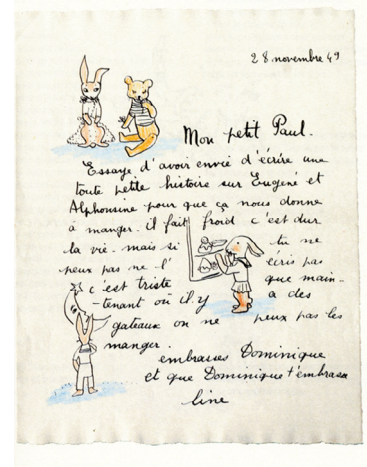 28 novembre 49
Mon petit Paul.
Essaye d'avoir envie d'écrire une
toute petite histoire sur Eugène et
Alphonsine pour que ça nous donne
à manger. il fait froid c'est dur
la vie. mais si tu ne
peux pas ne l'écris pas
c'est triste que main-
-tenant où il y a des
gateaux on ne peux pas les
manger.
embrasses Dominique
et que Dominique t'embrasse
line